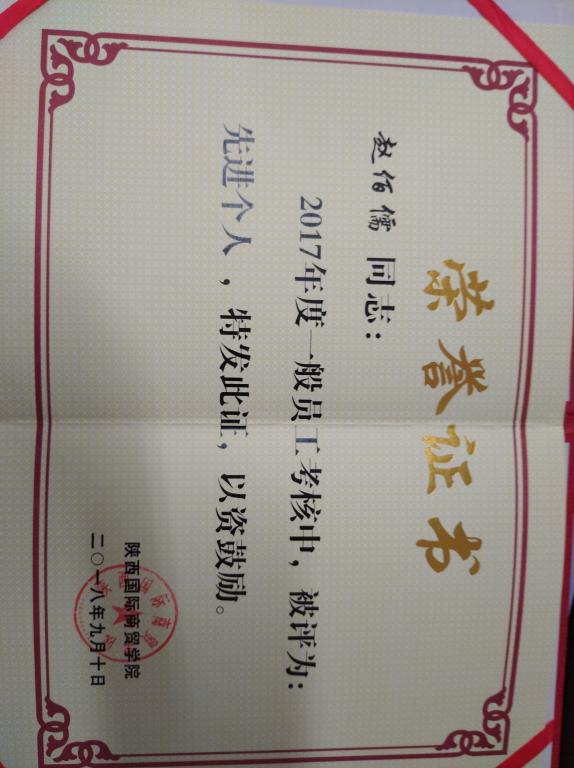 荣誉证书
赵佰儒 同志:
2017年度一般员工考核中,被评为:
先进个人,特发此证,以资鼓励。
陕西国际商贸学院
二〇一八年九月十日